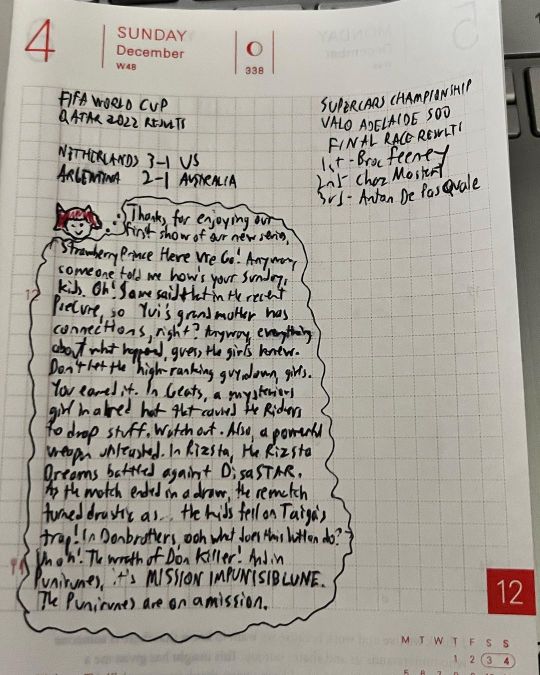 4
SUNDAY
December
W48
338
FIFA WORLD CUP
QATAR 2022 RESULTS
NETHERLANDS 3-1 US
ARGENTINA 2-1 AUSTRALIA
SUPERCARS CHAMPIONSHIP
VALO ADELAIDE 500
FINAL RACE RESULTS
1st - Broc Feeney
2nd - Chaz Mostert
3rd - Anton De Pasquale
Thanks for enjoying our
first show of our new series,
Strawberry Prince Here We Go! Anyway
someone told me how's your Sunday,
kids. Oh! Some said that in the recent
PreCure, so Yui's grandmother has
connections, right? Anyway, everything
about what happened, guess the girls knew.
Don't let the high-ranking guy down, girls.
You earned it. In Geats, a mysterious
girl in a red hat that caused the Riders
to drop stuff. Watch out. Also, a powerful
weapon unleashed. In Rizsta, the Rizsta
Dreams battled against DisaSTAR.
As the match ended in a draw, the rematch
turned drastic as... the kids fell on Taiga's
trap! In Donbrothers, ooh what does this button do?
Uh oh! The wrath of Don Killer! And in
Punirunes, it's MISSION IMPUNISIBLUNE.
The Punirunes are on a mission.
12
M T W T F S S
1 2 3 4